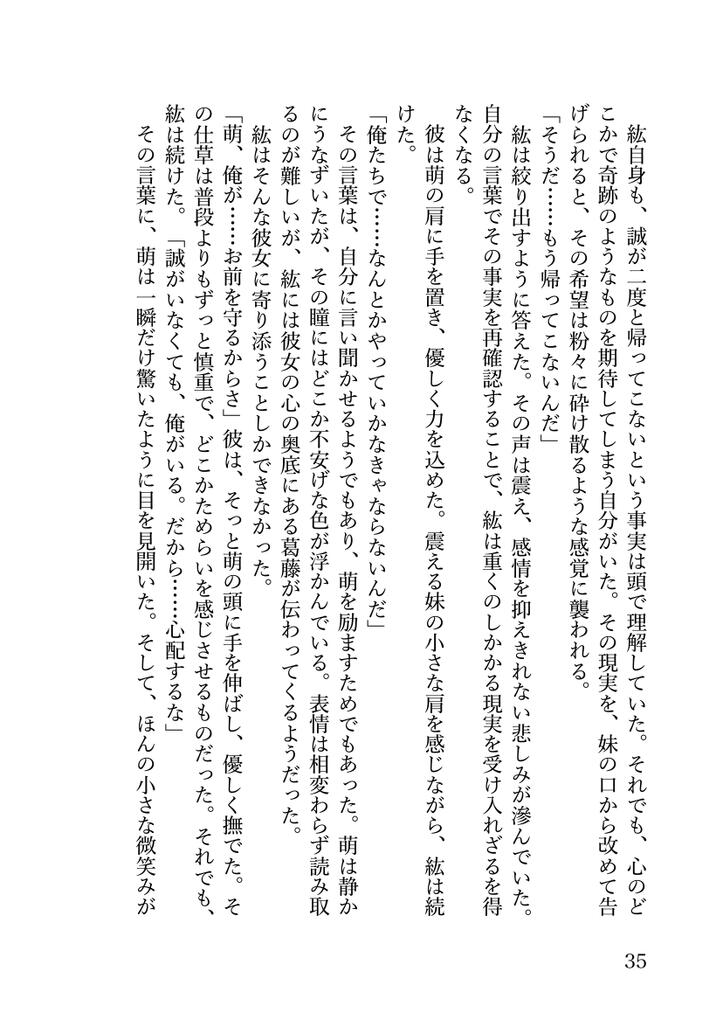 紘自身も、誠が二度と帰ってこないという事実は頭で理解していた。それでも、心のど
こかで奇跡のようなものを期待してしまう自分がいた。その現実を、妹の口から改めて告
げられると、その希望は粉々に砕け散るような感覚に襲われる。
「そうだ……もう帰ってこないんだ」
紘は絞り出すように答えた。その声は震え、感情を抑えきれない悲しみが滲んでいた。
自分の言葉でその事実を再確認することで、紘は重くのしかかる現実を受け入れざるを得
なくなる。
彼は萌の肩に手を置き、優しく力を込めた。震える妹の小さな肩を感じながら、紘は続
けた。
「俺たちで……なんとかやっていかなきゃならないんだ」
その言葉は、自分に言い聞かせるようでもあり、萌を励ますためでもあった。萌は静か
にうなずいたが、その瞳にはどこか不安げな色が浮かんでいる。表情は相変わらず読み取
るのが難しいが、紘には彼女の心の奥底にある葛藤が伝わってくるようだった。
紘はそんな彼女に寄り添うことしかできなかった。
「萌、俺が……お前を守るからさ」彼は、そっと萌の頭に手を伸ばし、優しく撫でた。そ
の仕草は普段よりもずっと慎重で、どこかためらいを感じさせるものだった。それでも、
紘は続けた。「誠がいなくても、俺がいる。だから……心配するな」
その言葉に、萌は一瞬だけ驚いたように目を見開いた。そして、ほんの小さな微笑みが
35